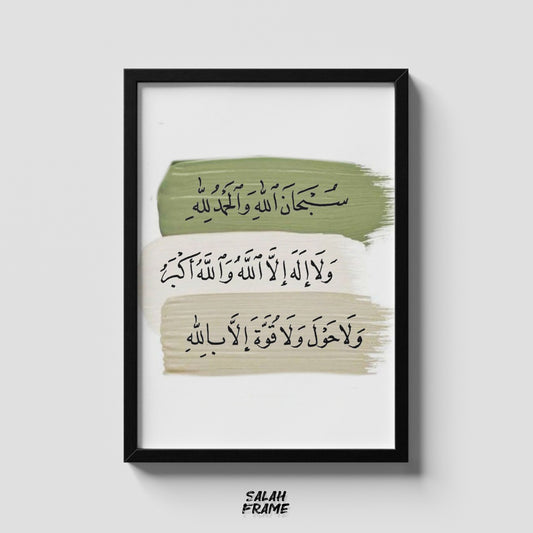 سُبْحَانَ ٱللَّهِ وَٱلْحَمْدُ لِلَّهِ
وَلَا إِلَهَ إِلَّا ٱللَّهُ وَٱللَّهُ أَكْبَرُ
وَلَا حَوْلَ وَلَا قُوَّةَ إِلَّا بِاللَّهِ
SALAH
FRAME